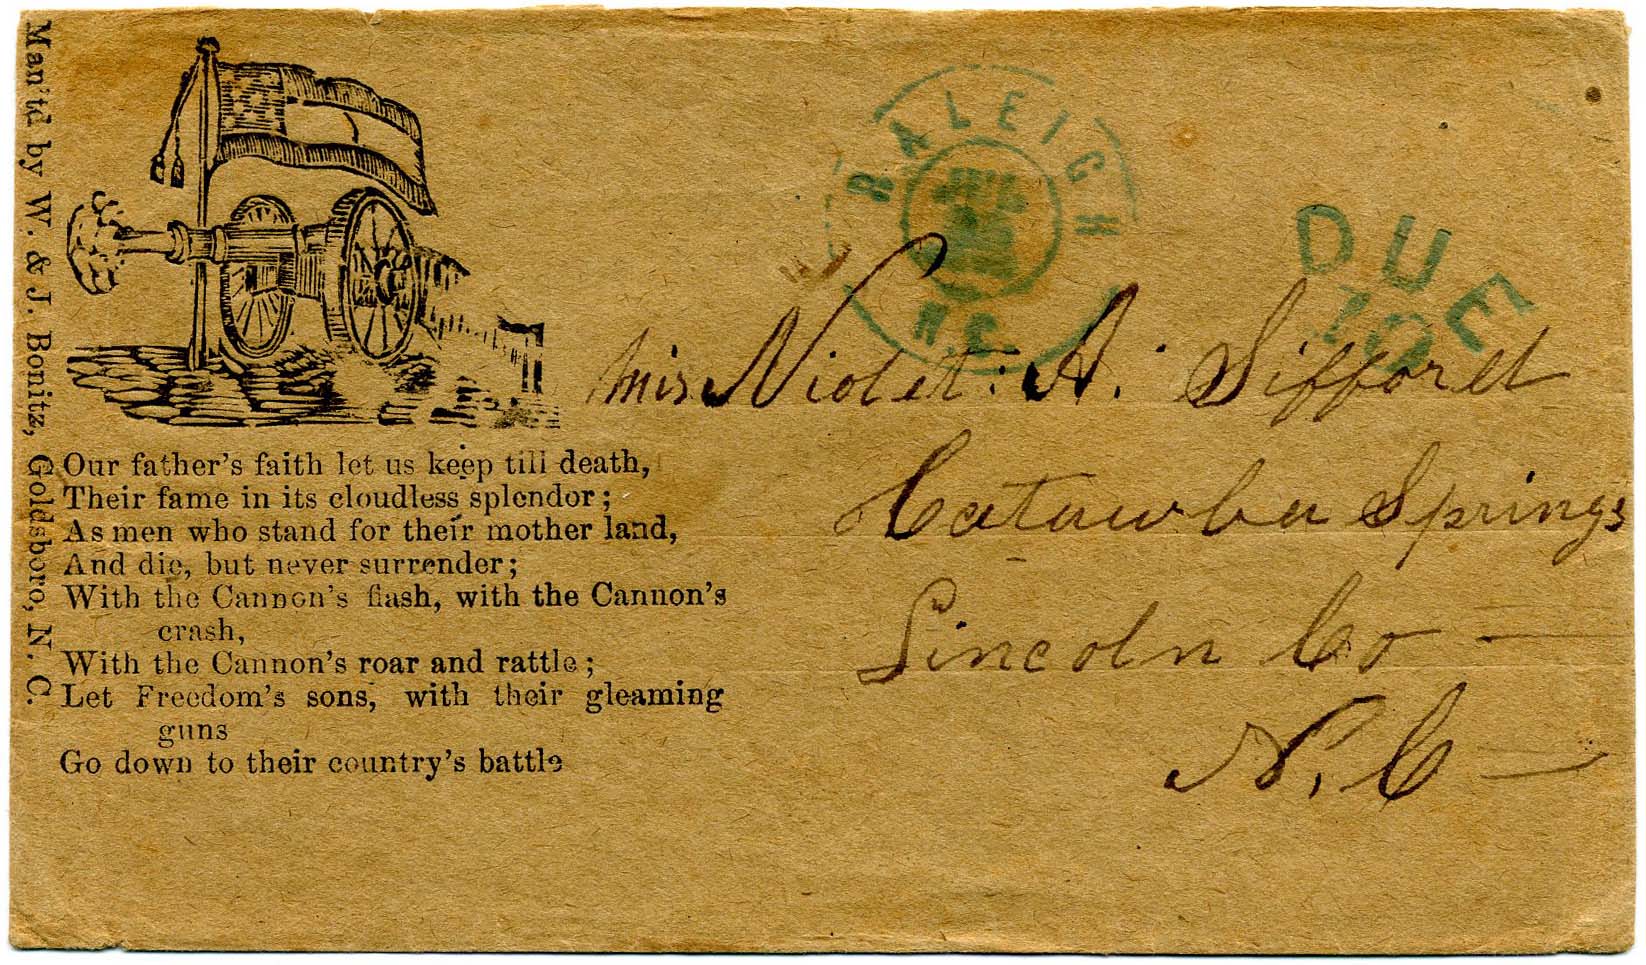 Man'td by W. & J. Bonitz, Goldsboro, N. C.
Our father's faith let us keep till death,
Their fame in its cloudless splendor;
As men who stand for their mother land,
And die, but never surrender;
With the Cannon's flash, with the Cannon's
crash,
With the Cannon's roar and rattle;
Let Freedom's sons, with their gleaming
guns
Go down to their country's battle
RALEIGH
N.C.
DUE
10
Violet: A. Sifford
Catawba Springs
Lincoln Co
N. C